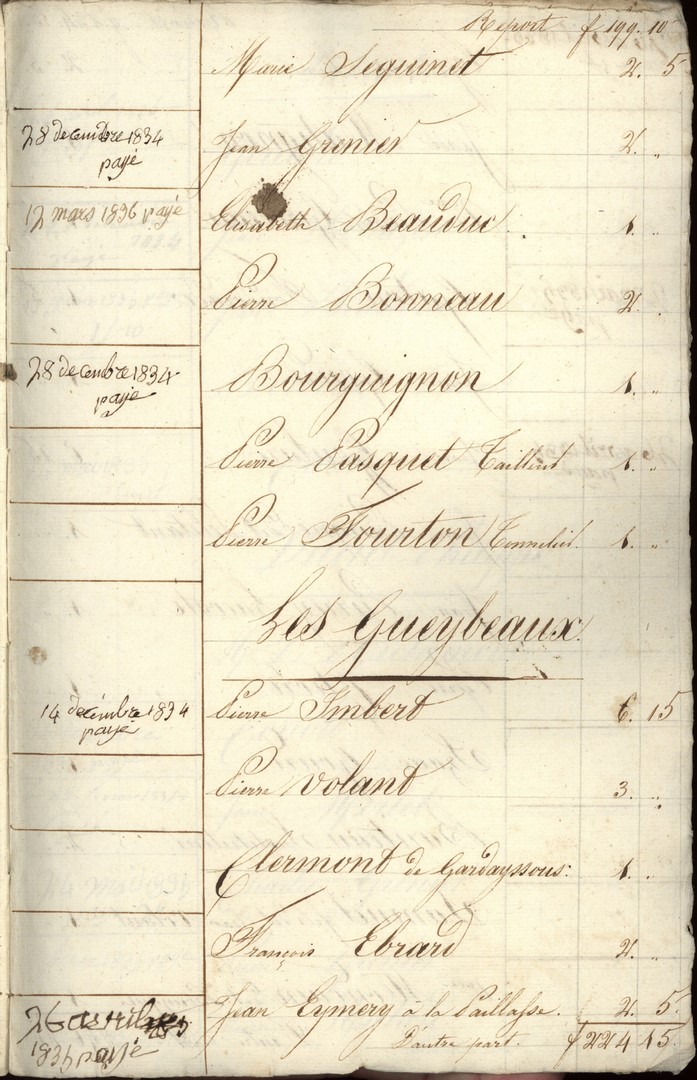 Report f 199. 10
Marie Seguinet 2. 5
28 decembre 1834
payé
Jean Grenier 2. "
12 mars 1836 payé
Elisabeth Beauduc. 1. "
Pierre Bonneau 2. "
28 decembre 1834
payé
Bourguignon 1. "
Pierre Pasquet Tailleur 1. "
Pierre Fourton Tonnelier. 1. "
Les Gueybeaux
14 decémbre 1834
payé
Pierre Imbert 6. 15
Pierre Volant 3. "
Clermont de Gardayssous: 1. "
François Ebrard 2. "
26 avril
1836 payé
Jean Eymery à la Paillasse. 2. 5.
D'autre part. f 224 15.